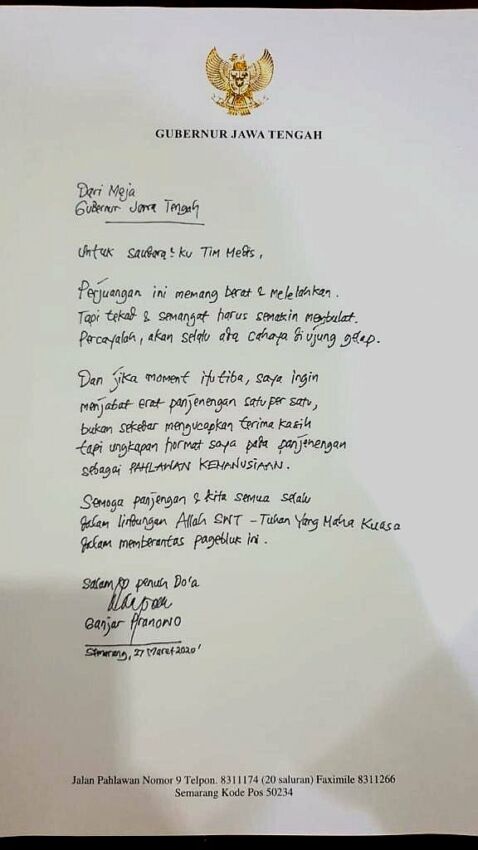 GUBERNUR JAWA TENGAH
Dari Meja
Gubernur Jawa Tengah
Untuk saudara²ku Tim Medis,
Perjuangan ini memang berat & melelahkan.
Tapi tekad & semangat harus semakin membulat.
Percayalah, akan selalu ada cahaya di ujung gelap.
Dan jika moment itu tiba, saya ingin
menjabat erat panjenengan satu per satu,
bukan sekedar mengucapkan terima kasih
tapi ungkapan hormat saya pada panjenengan
sebagai PAHLAWAN KEMANUSIAAN.
Semoga panjengan & kita semua selalu
dalam lindungan Allah SWT - Tuhan Yang Maha Kuasa
dalam memberantas pagebluk ini.
Salam penuh Do'a
Ganjar Pranowo
Semarang, 27 Maret 2020
Jalan Pahlawan Nomor 9 Telpon. 8311174 (20 saluran) Faximile 8311266
Semarang Kode Pos 50234